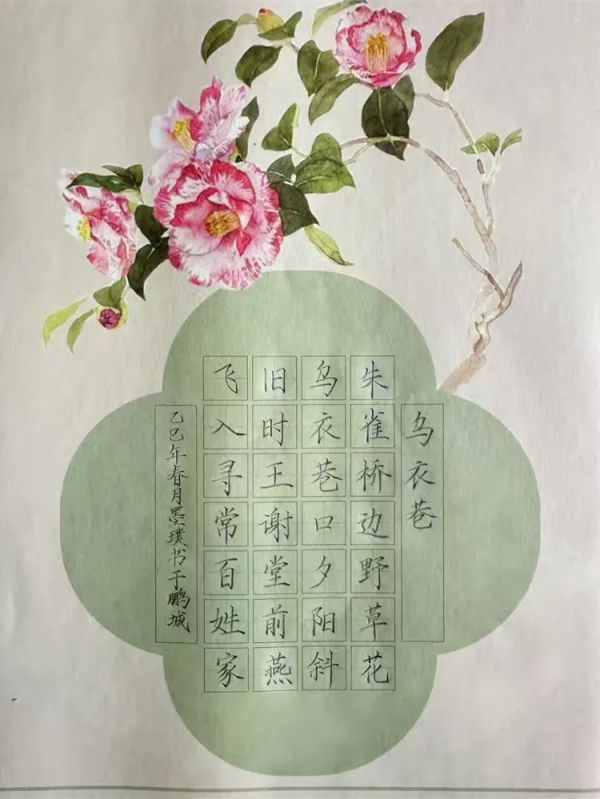 乌衣巷
朱雀桥边野草花
乌衣巷口夕阳斜
旧时王谢堂前燕
飞入寻常百姓家
乙巳年春月墨璞书于鹏城